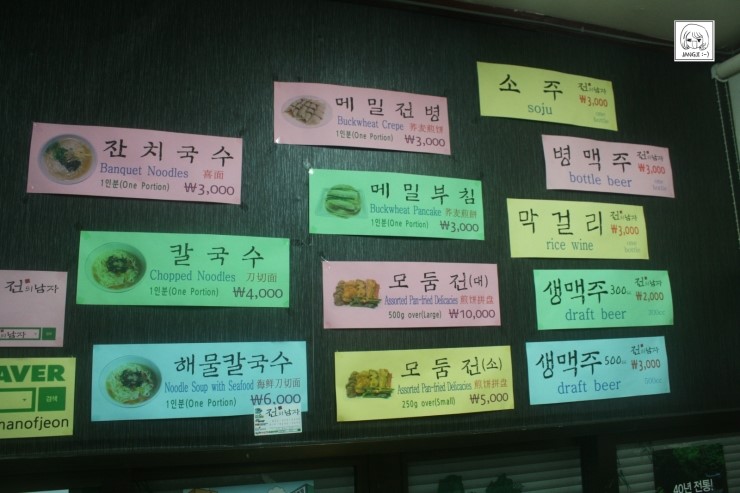 JANGJI :-)
잔치국수
Banquet Noodles 喜面
1인분(One Portion) ₩3,000
칼국수
Chopped Noodles 刀切面
1인분(One Portion) ₩4,000
해물칼국수
Noodle Soup with Seafood 海鲜刀切面
1인분(One Portion) ₩6,000
전의남자
전의남자
전의남자
AVER
검색
manofjeon
메밀전병
Buckwheat Crepe 荞麦煎饼
1인분(One Portion) ₩3,000
메밀부침
Buckwheat Pancake 荞麦煎饼
1인분(One Portion) ₩3,000
모둠전(대)
Assorted Pan-fried Delicacies 煎饼拼盘
500g over(Large) ₩10,000
모둠전(소)
Assorted Pan-fried Delicacies 煎饼拼盘
250g over(Small) ₩5,000
소주 전의남자
soju ₩3,000
병맥주 전의남자
bottle beer ₩3,000
막걸리 전의남자
rice wine ₩3,000
생맥주 300cc 전의남자
draft beer ₩2,000
300cc
생맥주 500cc 전의남자
draft beer ₩3,000
500cc
40년 전통!